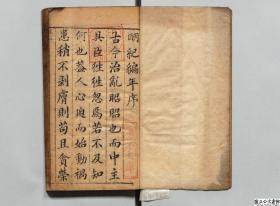 明紀編年序
古今治亂昭昭也而中主
具臣徃徃忽焉若不及知
何也蓋人心庭而始動禍
患稍不剥膚則苟且貪榮